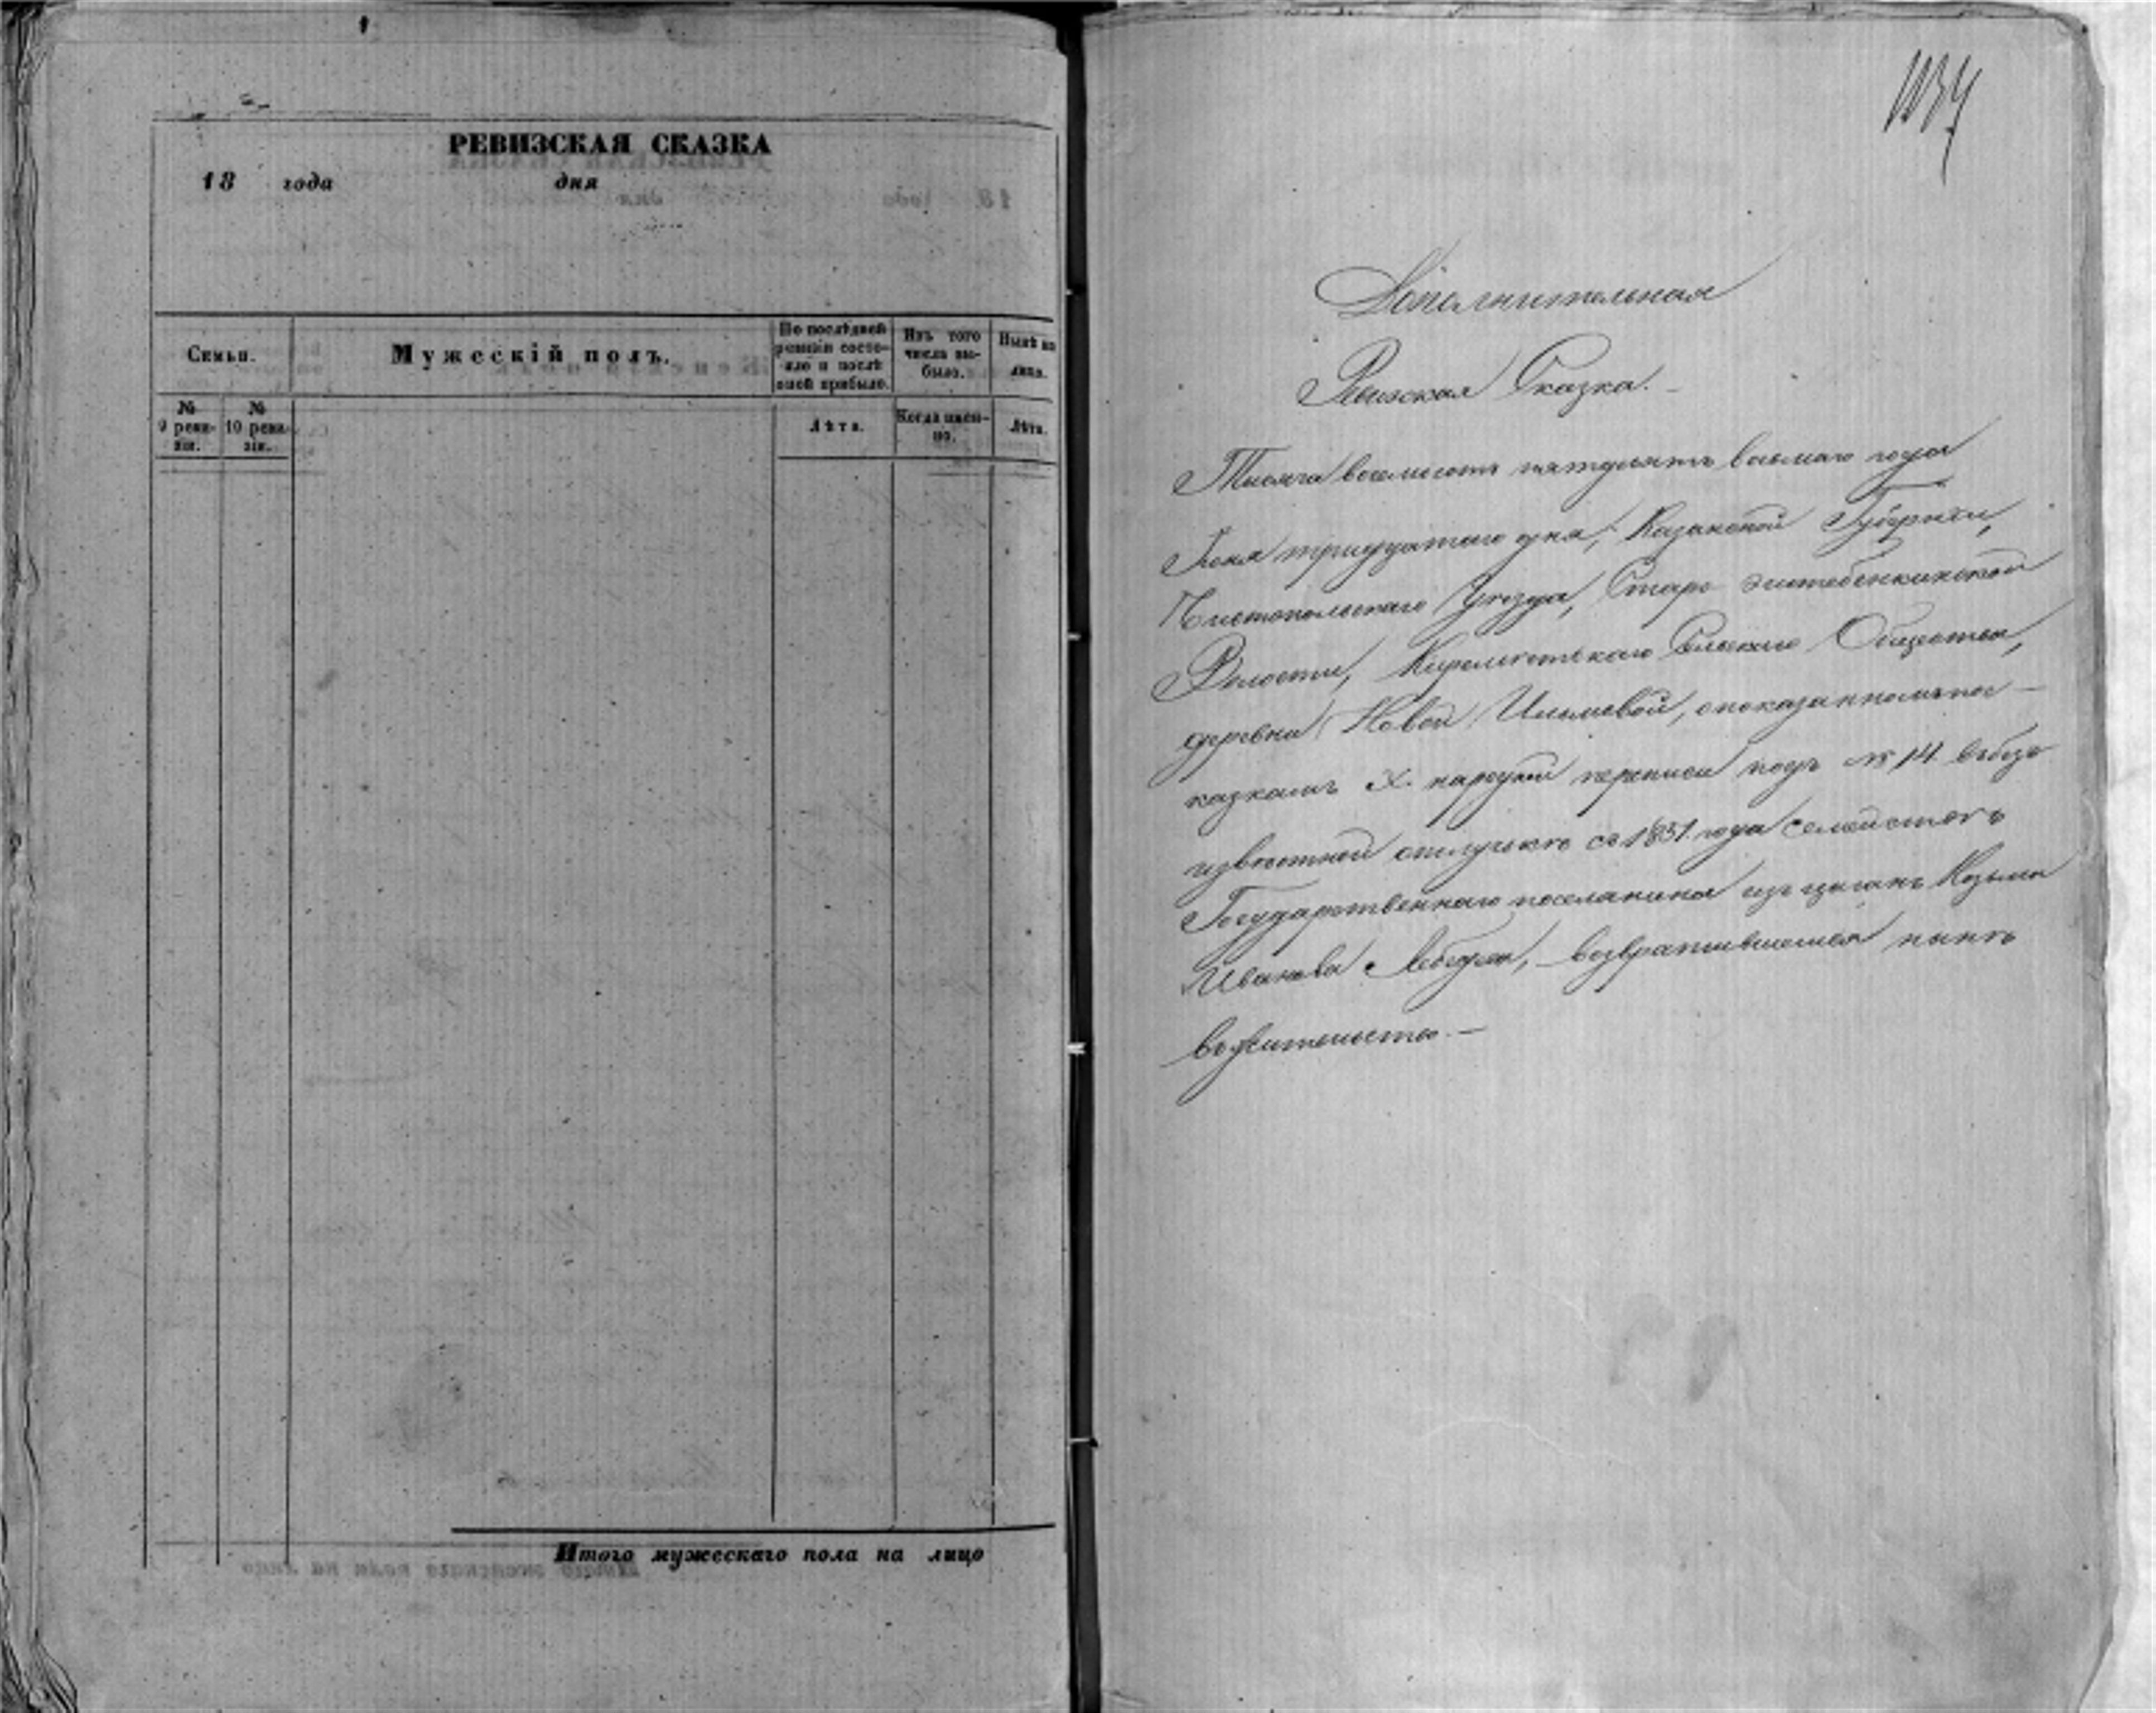 РЕВИЗСКАЯ СКАЗКА
18 года дня
Семьи.
Мужескій полъ.
По послѣдней ревизіи состо-
яло и послѣ
оной прибыло.
Изъ того
числа вы-
было.
Нынѣ на
лицо.
№
9 реви-
зіи.
№
10 реви-
зіи.
Лѣта.
Когда имен-
но.
Лѣта.
Итого мужескаго пола на лицо
Дополнительная
Ревизская Сказка.
Тысяча восемьсотъ пятдесятъ восьмаго года
тридцатаго дня, Казанской Губерніи,
Чистопольскаго Уѣзда, Старо
Волости, Киреметскаго Сельскаго Общества,
деревни Новой Ильмовой, о показанномъ по с-
казкамъ X. народной переписи подъ № 14 въ безъ
извѣстной отлучкѣ съ 1851 года семействѣ
Государственнаго поселянина изъ цыганъ Козьмы
Иванова возвратившемся нынѣ
въ жительство.